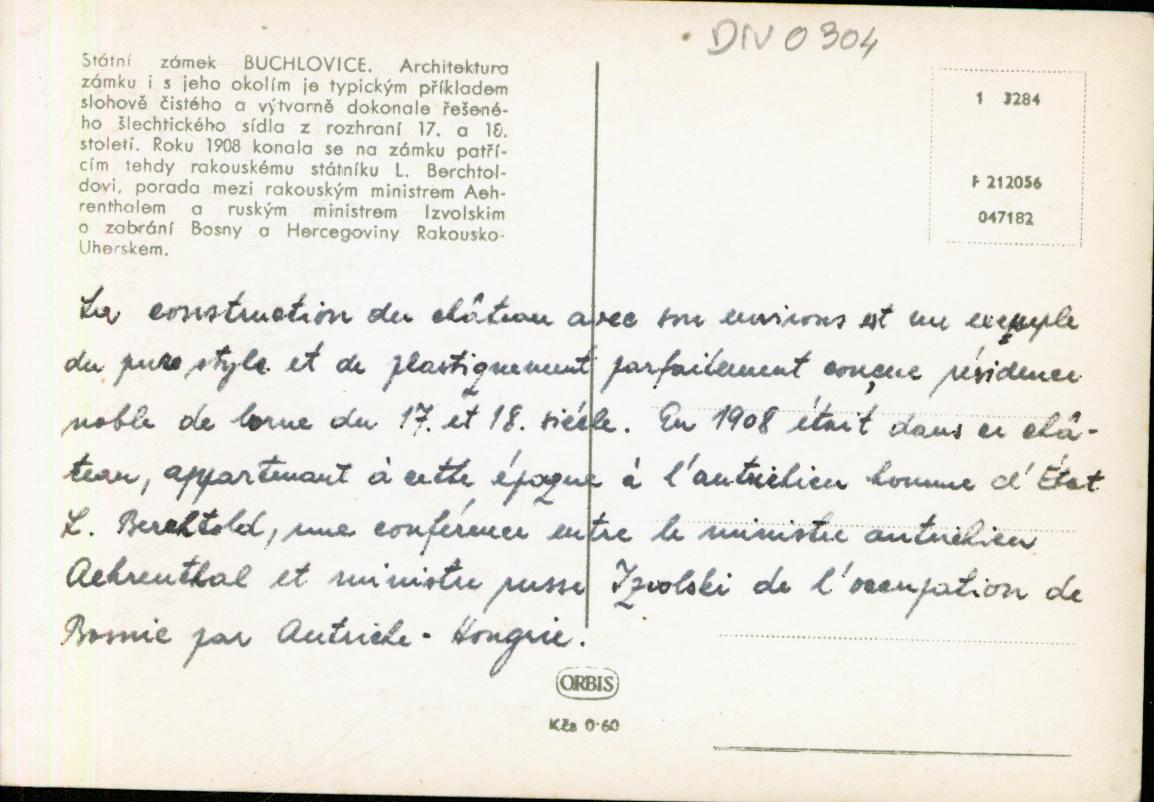 DN 0 304
Státní zámek BUCHLOVICE. Architektura
zámku i s jeho okolím je typickým příkladem
slohově čistého a výtvarně dokonale řešené-
ho šlechtického sídla z rozhraní 17. a 18.
století. Roku 1908 konala se na zámku patří-
cím tehdy rakouskému státníku L. Berchtol-
dovi, porada mezi rakouským ministrem Aeh-
renthalem a ruským ministrem Izvolskim
o zabrání Bosny a Hercegoviny Rakousko-
Uherskem.
1 3284
F 212056
047182
La construction du château avec son environs est un exemple
du pure style et de plastiquement parfaitement conçue résidence
noble de borne du 17. et 18. siécle. En 1908 était dans ce châ-
teau, appartenant à cette époque à l'autrichien homme d'État
L. Berchtold, une conférence entre le ministre autrichien
Aehrenthal et ministre russe Izvolski de l'occupation de
Bosnie par Autriche-Hongrie.
ORBIS
Kčs 0·60